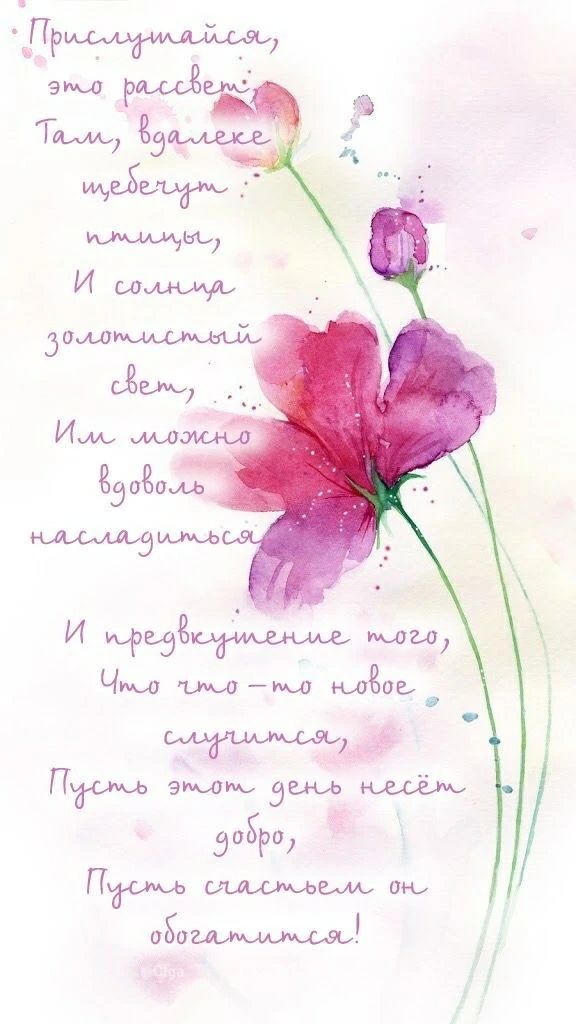 Прислушайся,
это рассвет,
Там, вдалеке
щебечут
птицы,
И солнца
золотистый
свет,
Им можно
вдоволь
насладиться
И предвкушение того,
Что что-то новое
случится,
Пусть этот день несёт
добро,
Пусть счастьем он
обогатится!
Olga